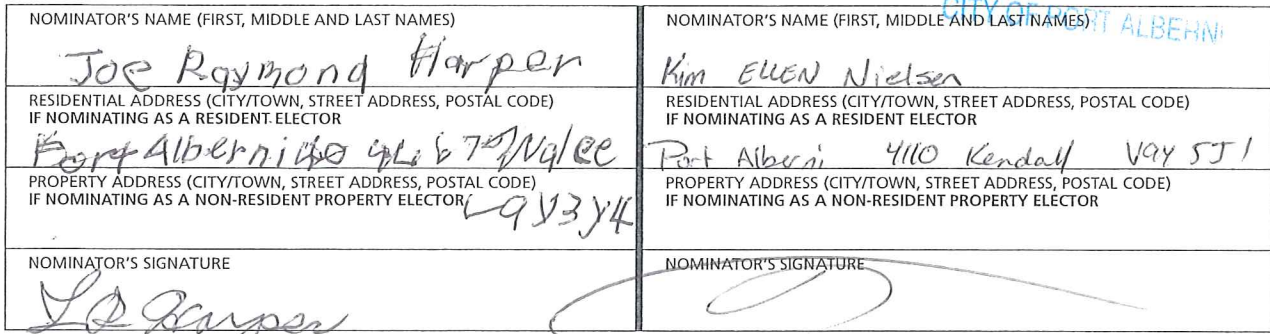 CITY OF PORT ALBERNI
NOMINATOR'S NAME (FIRST, MIDDLE AND LAST NAMES)
Joe Raymond Harper
RESIDENTIAL ADDRESS (CITY/TOWN, STREET ADDRESS, POSTAL CODE)
IF NOMINATING AS A RESIDENT ELECTOR
Port Alberni
PROPERTY ADDRESS (CITY/TOWN, STREET ADDRESS, POSTAL CODE)
IF NOMINATING AS A NON-RESIDENT PROPERTY ELECTOR
V9Y3Y4
NOMINATOR'S SIGNATURE
Harper
NOMINATOR'S NAME (FIRST, MIDDLE AND LAST NAMES)
Kim ELLEN Nielsen
RESIDENTIAL ADDRESS (CITY/TOWN, STREET ADDRESS, POSTAL CODE)
IF NOMINATING AS A RESIDENT ELECTOR
Port Alberni 4110 Kendall V9Y 5J1
PROPERTY ADDRESS (CITY/TOWN, STREET ADDRESS, POSTAL CODE)
IF NOMINATING AS A NON-RESIDENT PROPERTY ELECTOR
NOMINATOR'S SIGNATURE